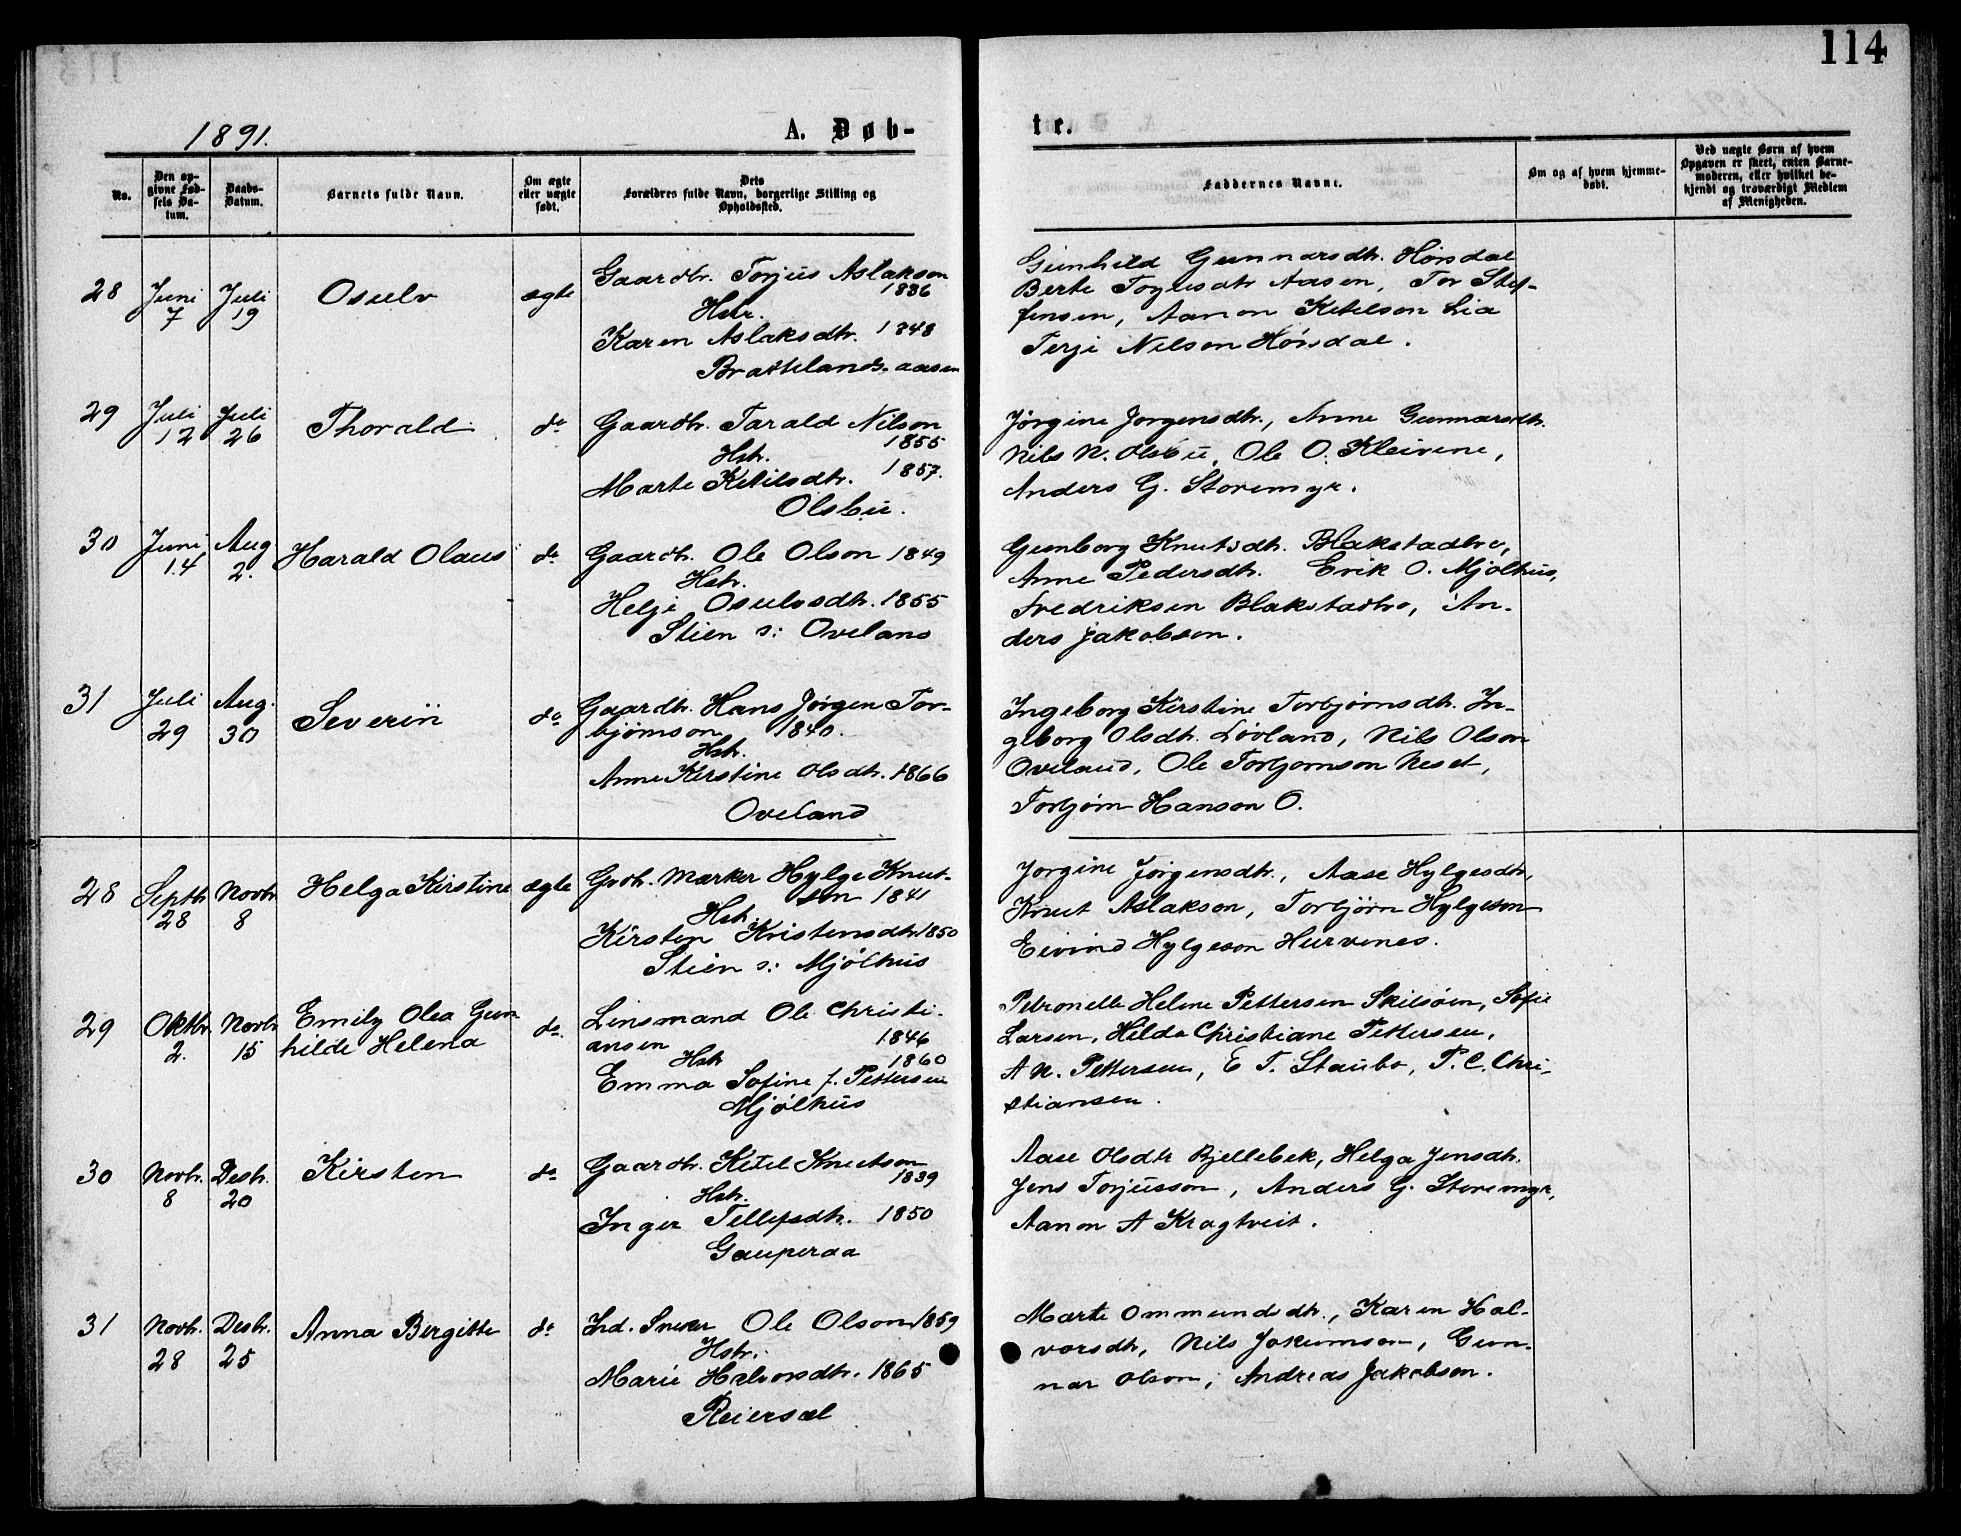 114
1891.
A. Døb-
te.
No.
Den op-
givne Fød-
sels Da-
tum.
Daabs-
Datum.
Barnets fulde Navn.
Om ægte
eller uægte
født.
Dets
Forældres fulde Navn, borgerlige Stilling og
Opholdssted.
Faddernes Navne.
Om og af hvem hjemme-
døbt.
Ved uægte Børn af hvem
Opgaven er skeet, enten Barne-
moderen, eller hvilket be-
kjendt og troværdigt Medlem
af Menigheden.
28 Juni 7 Juli 19 Osulv ægte
Gaardbr. Torjus Aslakson
1836
Hstr.
Karen Aslaksdtr. 1848
Brattelands-aasen
Gunhild Gunnarsdtr. Hørsdal
Berte Torjusdtr Aasen, Tor Stef-
fensen, Aanon Ketilson Lia
Terje Nilson Hørsdal.
29 Juli 12 Juli 26 Thorald do
Gaardbr. Tarald Nilson
1855
Hstr.
Marte Ketilsdtr. 1857.
Olsbu.
Jørgine Jørgensdtr., Anne Gunnarsdtr.
Nils N. Olsbu, Ole O. Kleivene,
Anders G. Storemyr.
30 Juni 14 Aug 2. Harald Olaus do.
Gaardbr. Ole Olson 1849
Hstr.
Helje Osulvsdtr. 1855
Stien s: Oveland
Gunborg Knutsdtr. Blakstadhe,
Anne Pedersdtr. Erik O. Mjølhus,
Fredriksen Blakstadhe, An-
ders Jakobsen.
31 Juli 29 Aug. 30 Severin do
Gaardbr. Hans Jørgen Tor-
bjørnson 1840.
Hstr.
Anne Kirstine Olsdtr. 1866
Oveland
Ingeborg Kirstine Torbjørnsdtr. In-
geborg Olsdtr. Løvland, Nils Olson
Oveland, Ole Torbjornson Neset,
Torbjørn Hanson O.
28 Septbr 28 Novbr 8 Helga Kirstine ægte
Gbr. Mærker Hylge Knut-
son 1841
Hstr.
Kirsten Kristensdtr 1850
Stien s: Mjølhus
Jorgine Jørgensdtr., Aase Hylgesdtr,
Knut Aslakson, Torbjørn Hylgeson
Eivind Hylgeson Hurvenes.
29 Oktbr. 2. Novbr 15 Emily Olea Gun
hilde Helena do.
Linsmand Ole Christi-
ansen 1846
Hstr 1860
Emma Sofine f. Pettersen
Mjølhus
Petronelle Helene Pettersen Skilsøen, Sofie
Larsen, Hilda Christiane Pettersen,
A N. Pettersen, E T. Staubo, P. C. Chri-
stiansen.
30 Novbr. 8 Desbr. 20 Kirsten do
Gaardbr. Ketel Knutson
1839
Hstr.
Inger Tellefsdtr. 1850
Gauperaa
Aase Olsdtr Bjellebek, Helga Jensdtr.
Jens Torjusson, Anders G. Storemyr,
Aanon A Kragtveit.
31 Novbr. 28 Desbr. 25 Anna Bergitte do
Ind. Sneker Ole Olson 1859
Hstr.
Marie Halvorsdtr. 1865
Reiersøl
Marte Ommundsdtr., Karen Hal-
vorsdtr, Nils Jokumson, Gun-
nar Olson, Andreas Jakobson.